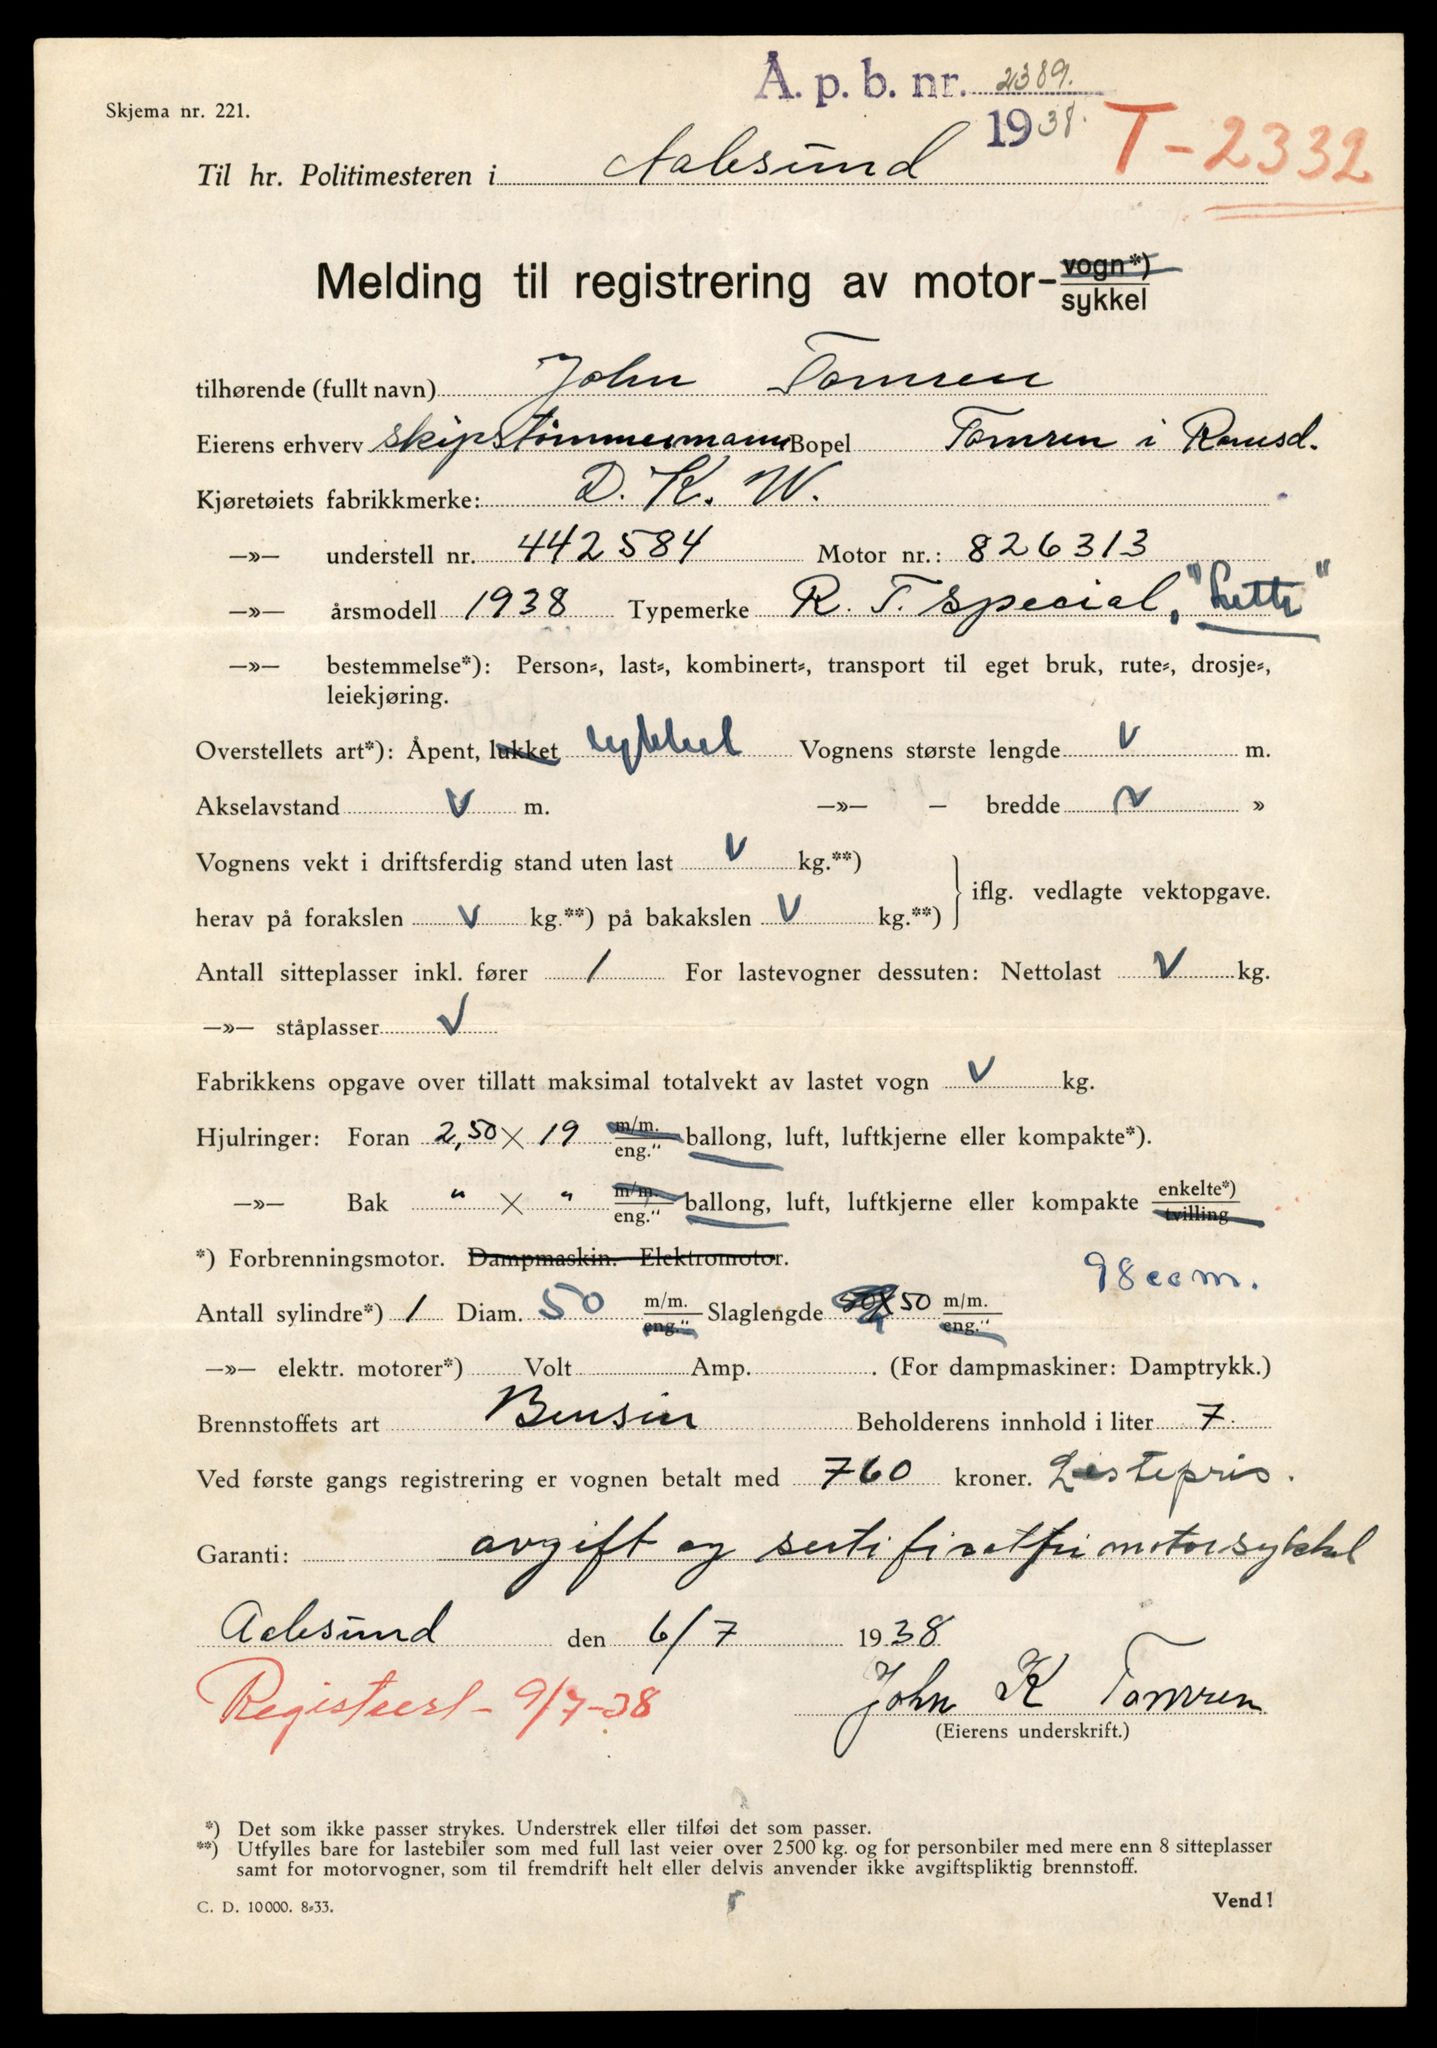 Å. p. b. nr. 2389.
1938.
T-2332
Skjema nr. 221.
Til hr. Politimesteren i Aalesund
Melding til registrering av motor-vogn*)
sykkel
tilhørende (fullt navn) John Tomren
Eierens erhverv skipstømmermann Bopel Tomren i Romsd.
Kjøretøiets fabrikkmerke: D. K. W.
—»— understell nr. 442584 Motor nr.: 826313
—»— årsmodell 1938 Typemerke R. T. special, "Lette"
—»— bestemmelse*): Person-, last-, kombinert-, transport til eget bruk, rute-, drosje-,
leiekjøring.
Overstellets art*): Åpent, lukket sykkel Vognens største lengde v m.
Akselavstand v m. —»— — bredde v »
Vognens vekt i driftsferdig stand uten last v kg.**)
herav på forakslen v kg.**) på bakakslen v kg.**) iflg. vedlagte vektopgave.
Antall sitteplasser inkl. fører 1 For lastevogner dessuten: Nettolast v kg.
—»— ståplasser v
Fabrikkens opgave over tillatt maksimal totalvekt av lastet vogn v kg.
Hjulringer: Foran 2,50 × 19 m/m. eng." ballong, luft, luftkjerne eller kompakte*).
—»— Bak " × " m/m. eng." ballong, luft, luftkjerne eller kompakte enkelte*) tvilling
*) Forbrenningsmotor. Dampmaskin. Elektromotor.
98 ccm.
Antall sylindre*) 1 Diam. 50 m/m. eng." Slaglengde 50 m/m. eng."
—»— elektr. motorer*) Volt Amp. . (For dampmaskiner: Damptrykk.)
Brennstoffets art Bensin Beholderens innhold i liter 7
Ved første gangs registrering er vognen betalt med 760 kroner. Listepris.
Garanti: avgift og sertifikatfri motorsykkel
Aalesund den 6/7 1938
Registrert - 9/7-38
John K Tomren
(Eierens underskrift.)
*) Det som ikke passer strykes. Understrek eller tilføi det som passer.
**) Utfylles bare for lastebiler som med full last veier over 2500 kg. og for personbiler med mere enn 8 sitteplasser
samt for motorvogner, som til fremdrift helt eller delvis anvender ikke avgiftspliktig brennstoff.
C. D. 10000. 8-33.
Vend!